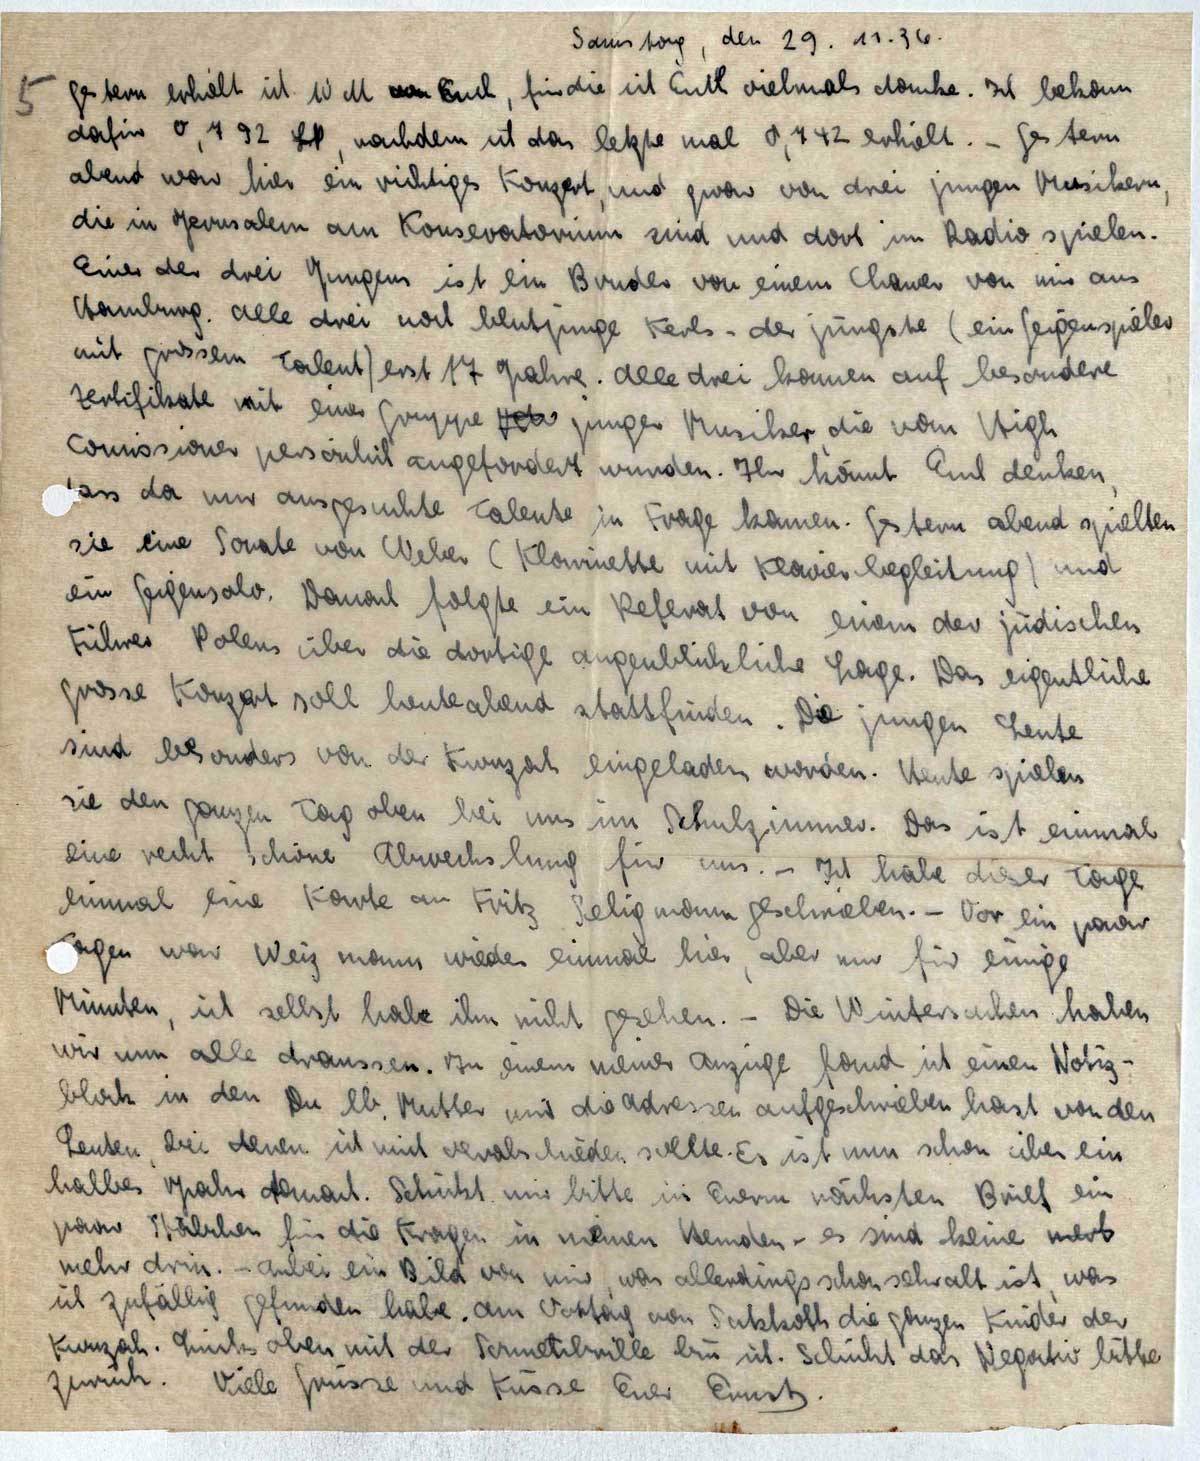 Samstag, den 29. 11. 36.
5
Gestern erhielt ich 10 M von Euch, für die ich Euch vielmals danke. Ich bekam
dafür 0,792 LP, nachdem ich das letzte mal 0,742 erhielt. – Gestern
abend war hier ein richtiges Konzert, und zwar von drei jungen Musikern,
die in Jerusalem am Konservatorium sind und dort im Radio spielen.
Einer der drei Jungens ist ein Bruder von einem Chawer von mir aus
Hamburg. Alle drei noch blutjunge Kerls – der jüngste (ein Geigenspieler
mit grossem Talent) erst 17 Jahre. Alle drei kamen auf besondere
Zertifikate mit einer Gruppe junger Musiker, die vom High
Comissioner persönlich angefordert wurden. Ihr könnt Euch denken,
dass da nur ausgesuchte Talente in Frage kamen. Gestern abend spielten
sie eine Sonate von Weber (Klarinette mit Klavierbegleitung) und
ein Geigensolo. Danach folgte ein Referat von einem der jüdischen
Führer Polens über die dortige augenblickliche Lage. Das eigentliche
grosse Konzert soll heute abend stattfinden. Die jungen Leute
sind besonders von der Kwuzah eingeladen worden. Heute spielen
sie den ganzen Tag oben bei uns im Schulzimmer. Das ist einmal
eine recht schöne Abwechslung für uns. – Ich habe dieser Tage
einmal eine Karte an Fritz Seligmann geschrieben. – Vor ein paar
Tagen war Weizmann wieder einmal hier, aber nur für einige
Minuten, ich selbst habe ihn nicht gesehen. – Die Wintersachen haben
wir nun alle draussen. In einem meiner Anzüge fand ich einen Notiz-
block in den Du lb. Mutter mir die Adressen aufgeschrieben hast von den
Leuten, bei denen ich mich verabschieden sollte. Es ist nun schon über ein
halbes Jahr danach. Schickt mir bitte in Eurem nächsten Brief ein
paar Stäbchen für die Kragen in meinen Hemden – es sind keine
mehr drin. – Anbei ein Bild von mir, was allerdings schon sehr alt ist, was
ich zufällig gefunden habe. Am Vortag von Sukkoth die ganzen Kinder der
Kwuzah. Links oben mit der bin ich. Schickt das Negativ bitte
zurück. Viele Grüsse und Küsse Euer Ernst.